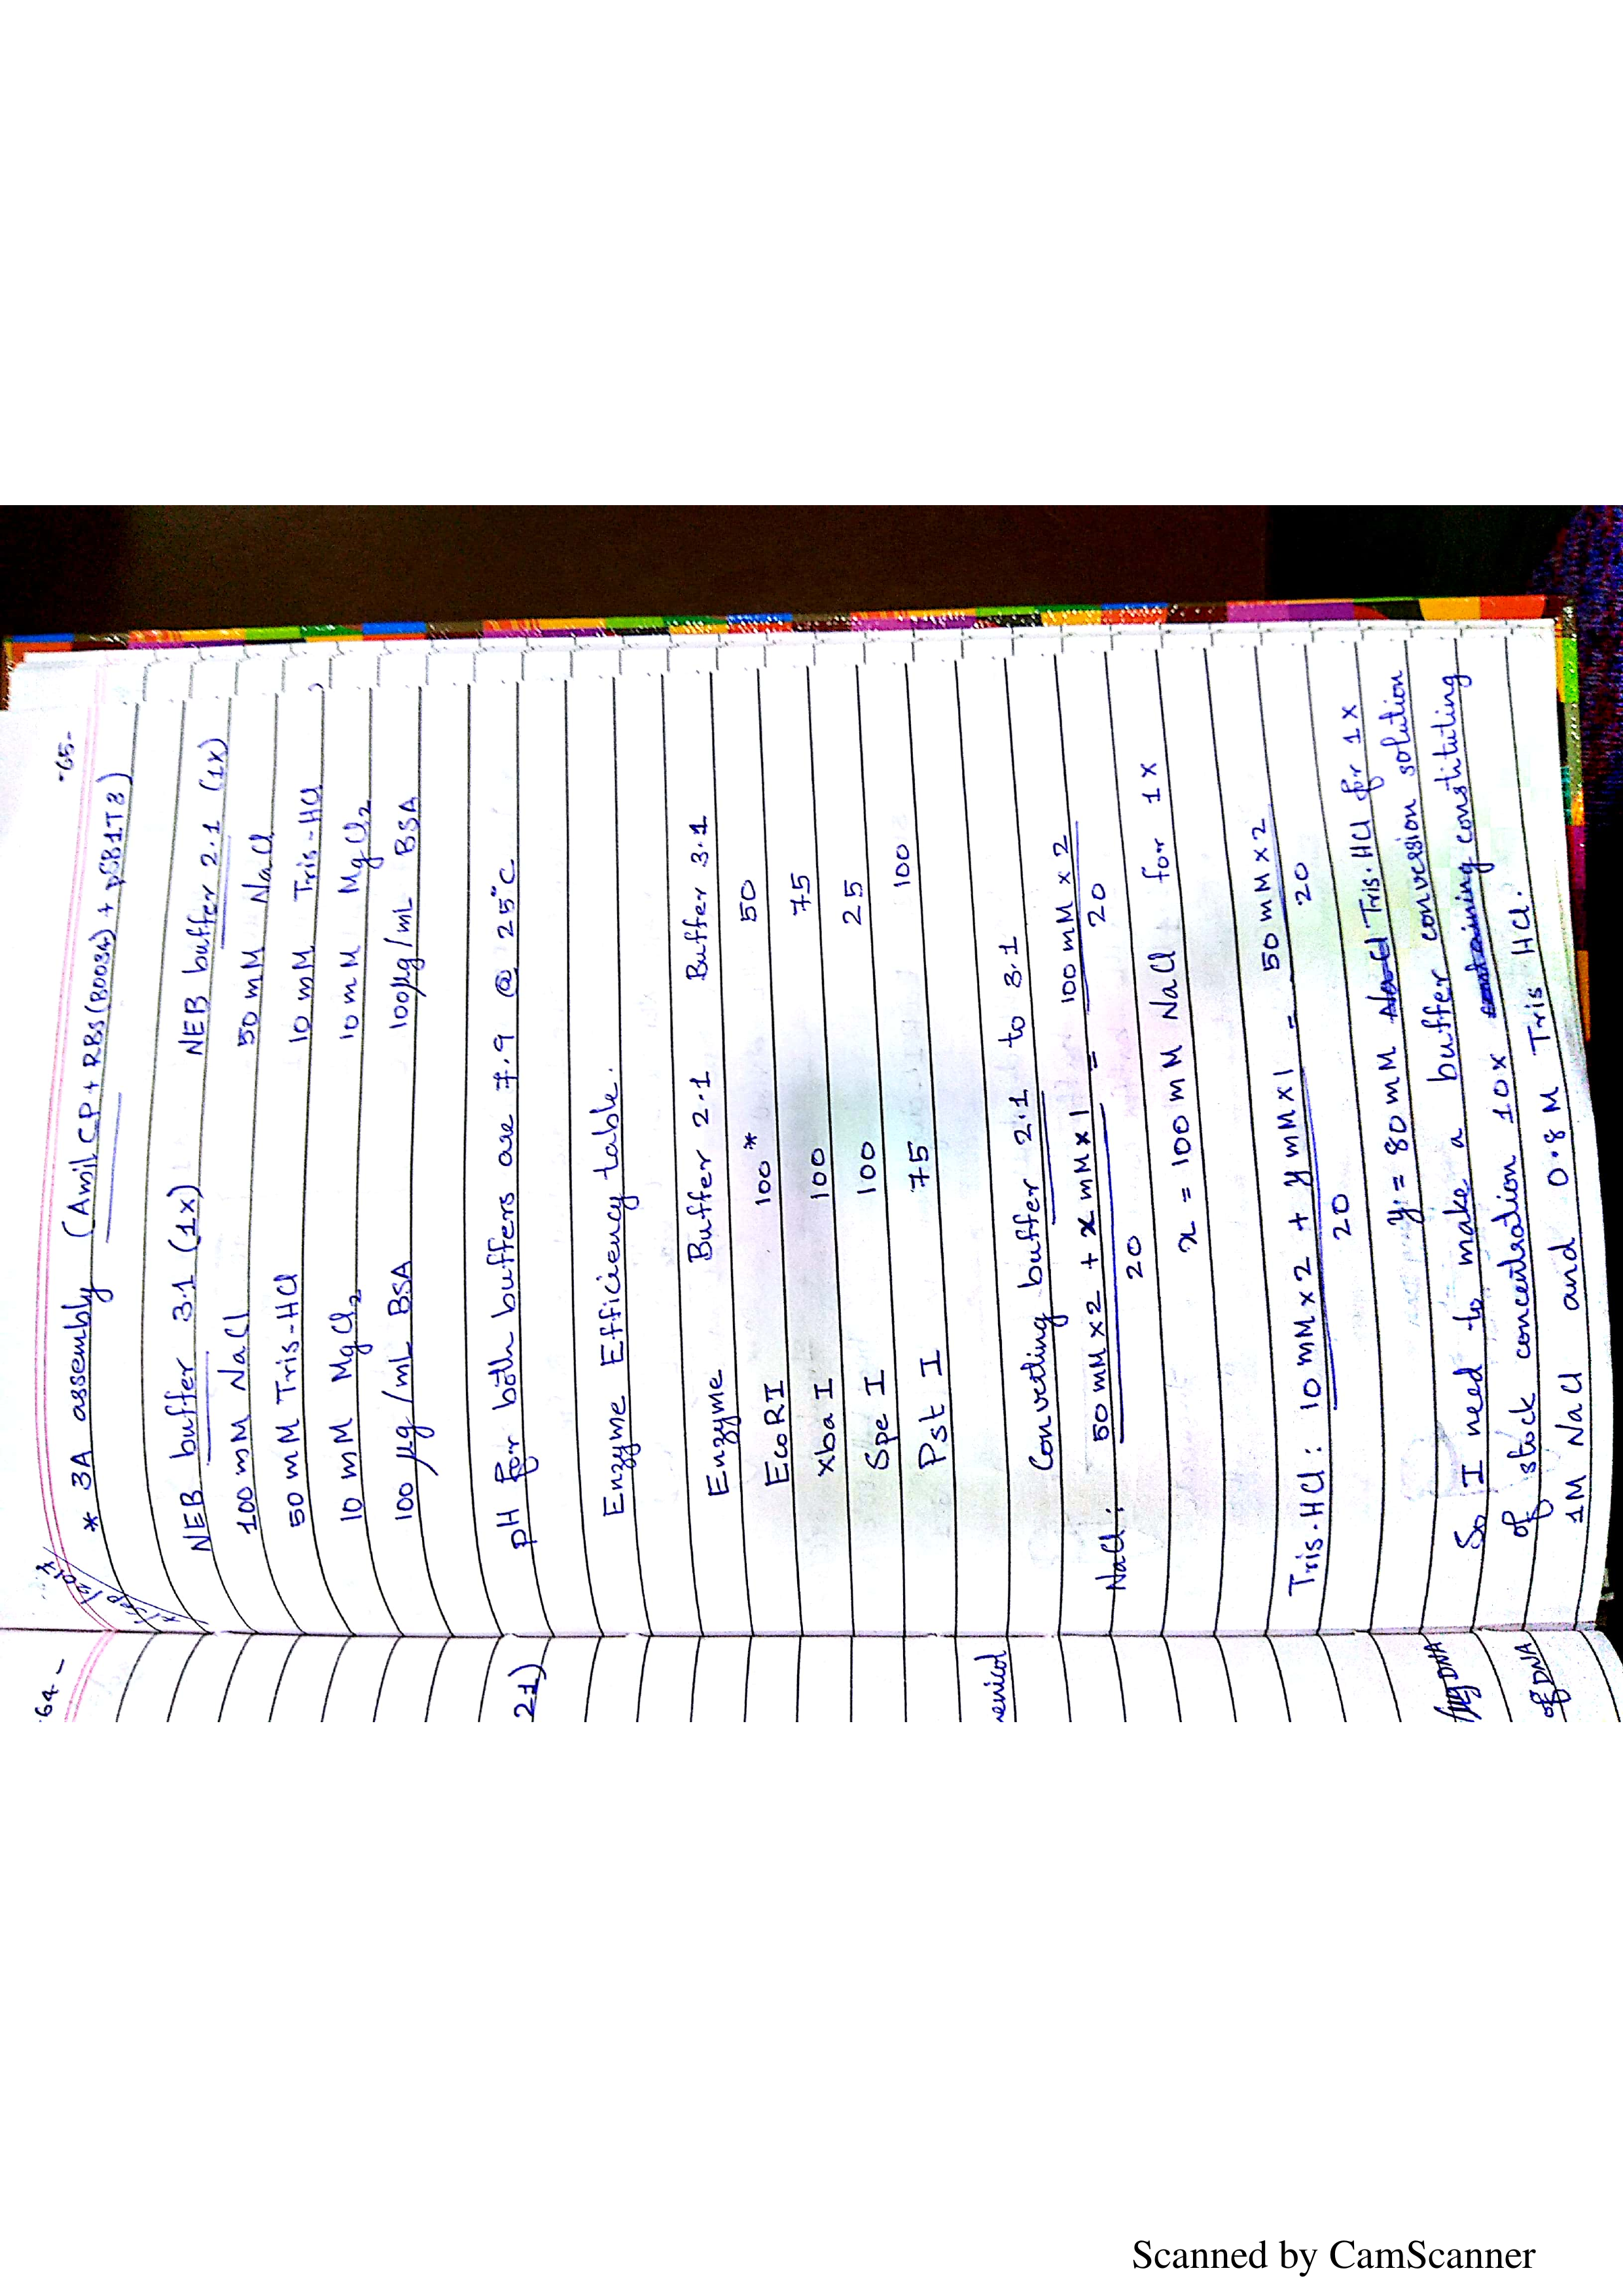 -65-
* 3A assembly (AmilCP + RBS(B0034) + pSB1T3)
NEB buffer 3.1 (1x) NEB buffer 2.1 (1x)
100 mM NaCl 50 mM NaCl
50 mM Tris-HCl 10 mM Tris-HCl
10 mM MgCl2 10 mM MgCl2
100 µg/mL BSA 100µg/mL BSA
pH for both buffers are 7.9 @ 25°C
Enzyme Efficiency table.
Enzyme Buffer 2.1 Buffer 3.1
EcoRI 100* 50
xba I 100 75
Spe I 100 25
Pst I 75 100
Converting buffer 2.1 to 3.1
NaCl: 50 mM x 2 + x mM x 1 = 100 mM x 2
20 20
x = 100 mM NaCl for 1x
Tris.HCl: 10 mM x 2 + y mM x 1 = 50 mM x 2
20 20
y = 80 mM NaCl Tris.HCl for 1x
So I need to make a buffer conversion solution
of stock concentration 10x containing constituting
1M NaCl and 0.8 M Tris HCl.
-64-
21)
of DNA
Scanned by CamScanner